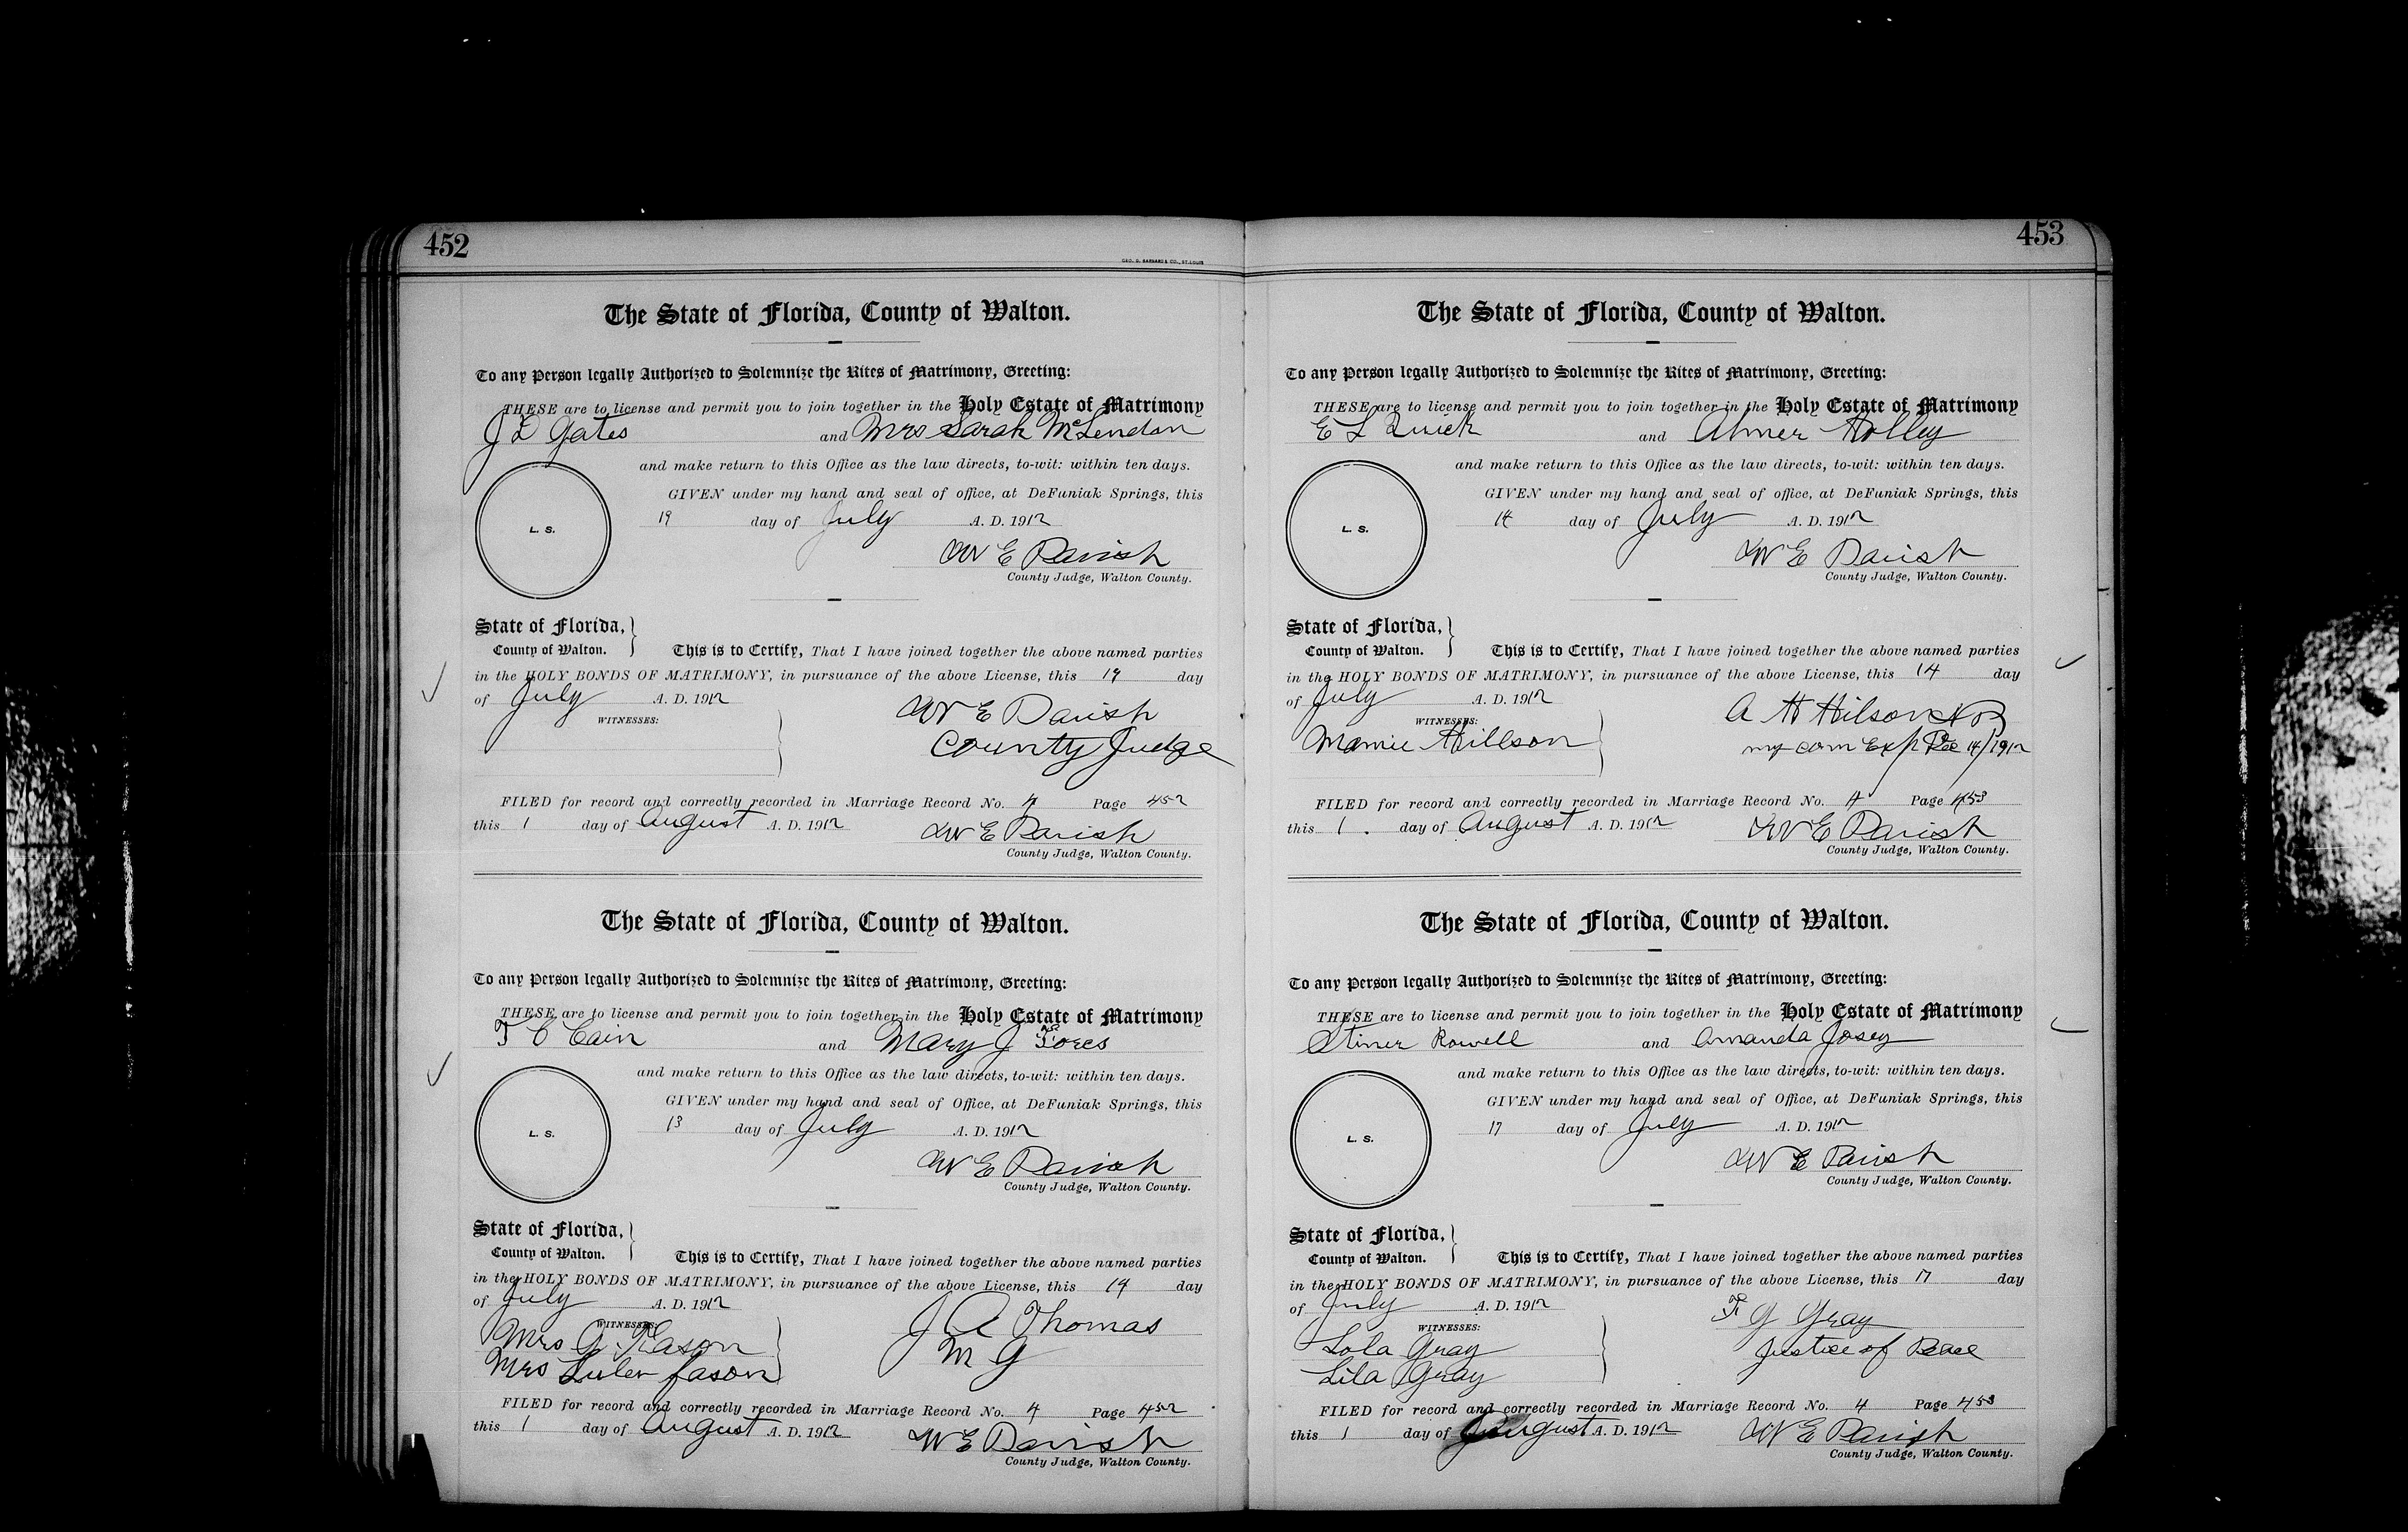 452
GEO. D. BARNARD & CO., ST. LOUIS
The State of Florida, County of Walton.
To any Person legally Authorized to Solemnize the Rites of Matrimony, Greeting:
THESE are to license and permit you to join together in the Holy Estate of Matrimony
J D Gates and Mrs Sarah McLendon
and make return to this Office as the law directs, to-wit: within ten days.
GIVEN under my hand and seal of office, at DeFuniak Springs, this
19 day of July A. D. 1912
L. S.
W E Parish
County Judge, Walton County.
State of Florida,
County of Walton.
This is to Certify, That I have joined together the above named parties
in the HOLY BONDS OF MATRIMONY, in pursuance of the above License, this 19 day
of July A. D. 1912
WITNESSES:
W E Parish
County Judge
FILED for record and correctly recorded in Marriage Record No. 4 Page 452
this 1 day of August A. D. 1912
W E Parish
County Judge, Walton County.
The State of Florida, County of Walton.
To any Person legally Authorized to Solemnize the Rites of Matrimony, Greeting:
THESE are to license and permit you to join together in the Holy Estate of Matrimony
T C Cain and Mary J
and make return to this Office as the law directs, to-wit: within ten days.
GIVEN under my hand and seal of Office, at DeFuniak Springs, this
13 day of July A. D. 1912
L. S.
W E Parish
County Judge, Walton County.
State of Florida,
County of Walton.
This is to Certify, That I have joined together the above named parties
in the HOLY BONDS OF MATRIMONY, in pursuance of the above License, this 14 day
of July A. D. 1912
WITNESSES:
J A Thomas
Mrs
M G
Mrs
FILED for record and correctly recorded in Marriage Record No. 4 Page 452
this 1 day of August A. D. 1912
W E Parish
County Judge, Walton County.
453
The State of Florida, County of Walton.
To any Person legally Authorized to Solemnize the Rites of Matrimony, Greeting:
THESE are to license and permit you to join together in the Holy Estate of Matrimony
E L Quick and Almer Holley
and make return to this Office as the law directs, to-wit: within ten days.
GIVEN under my hand and seal of office, at DeFuniak Springs, this
14 day of July A. D. 1912
L. S.
W E Parish
County Judge, Walton County.
State of Florida,
County of Walton.
This is to Certify, That I have joined together the above named parties
in the HOLY BONDS OF MATRIMONY, in pursuance of the above License, this 14 day
of July A. D. 1912
WITNESSES:
A H Hilson N P
Mamie Hillson
my com Exp Dec 14/1912
FILED for record and correctly recorded in Marriage Record No. 4 Page 453
this 1 day of August A. D. 1912
W E Parish
County Judge, Walton County.
The State of Florida, County of Walton.
To any Person legally Authorized to Solemnize the Rites of Matrimony, Greeting:
THESE are to license and permit you to join together in the Holy Estate of Matrimony
Stiner Rowell and Amanda Josey
and make return to this Office as the law directs, to-wit: within ten days.
GIVEN under my hand and seal of Office, at DeFuniak Springs, this
17 day of July A. D. 1912
L. S.
W E Parish
County Judge, Walton County.
State of Florida,
County of Walton.
This is to Certify, That I have joined together the above named parties
in the HOLY BONDS OF MATRIMONY, in pursuance of the above License, this 17 day
of July A. D. 1912
WITNESSES:
F G Gray
Lola Gray
Justice of Peace
Lila Gray
FILED for record and correctly recorded in Marriage Record No. 4 Page 453
this 1 day of August A. D. 1912
W E Parish
County Judge, Walton County.